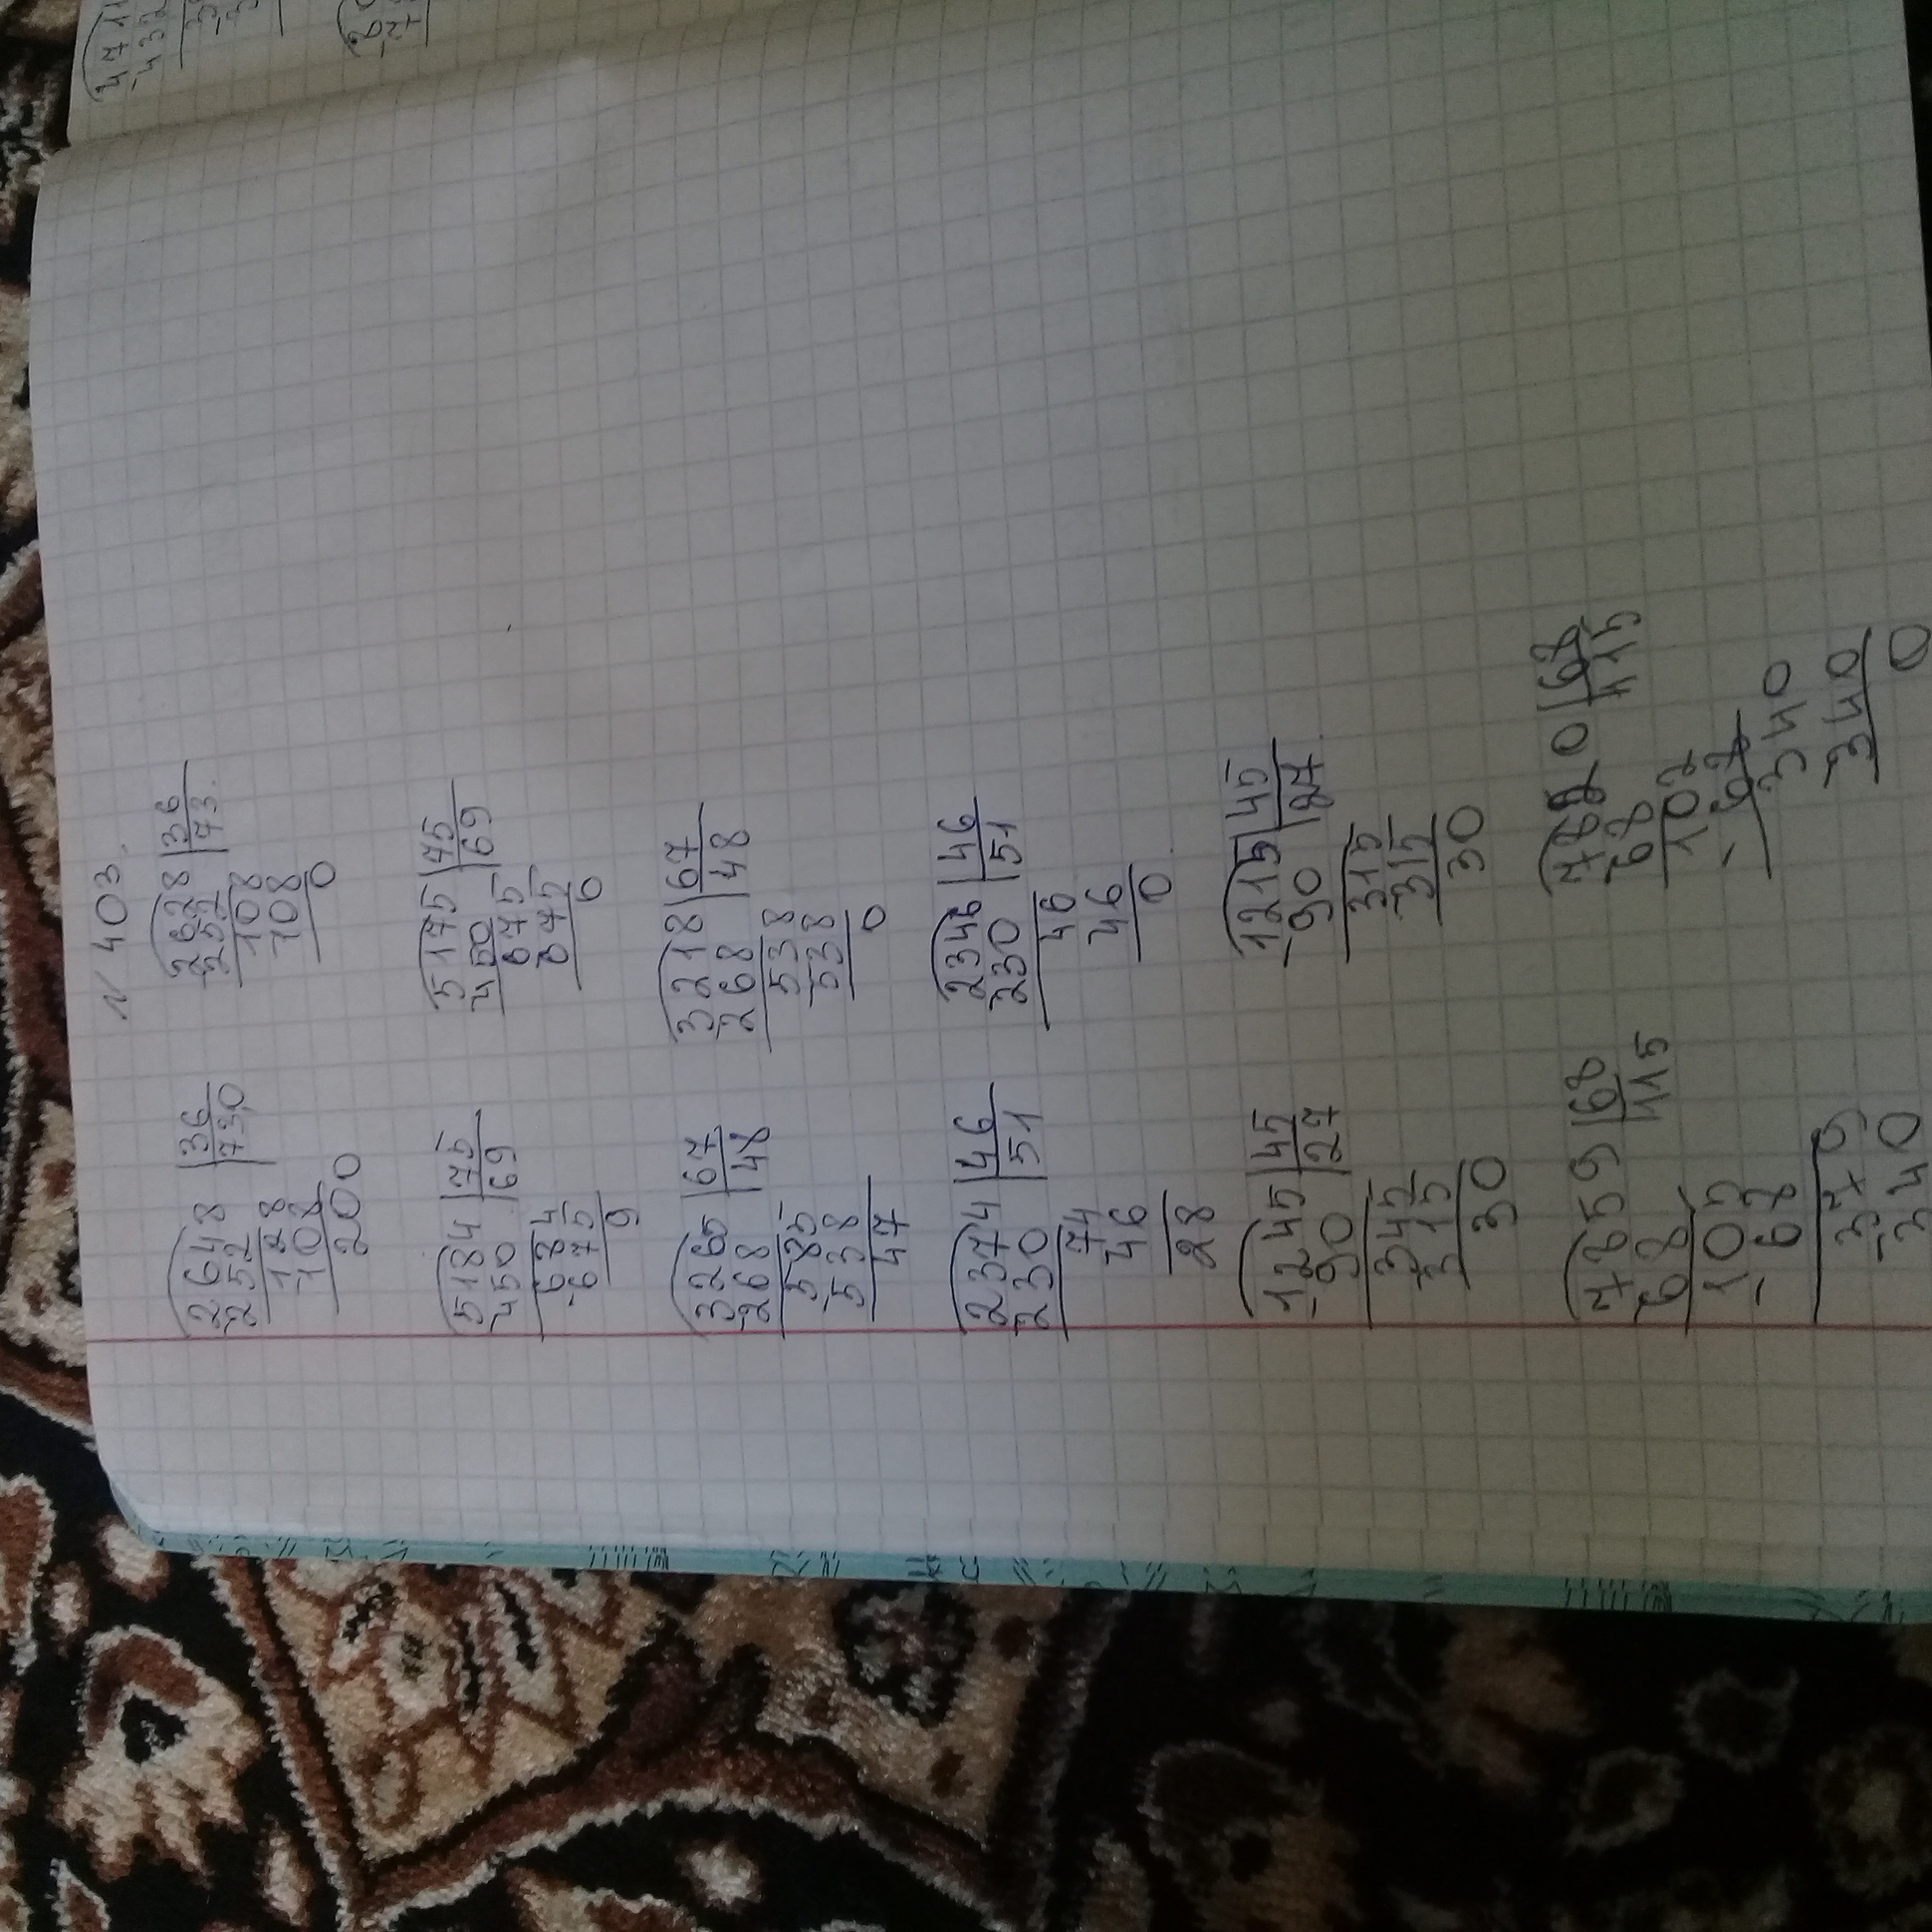 N 403.
2648 | 36
-252 | 730
128
-108
200
2628 | 36
-252 | 73.
108
108
0
5184 | 75
-450 | 69
684
-675
9
5175 | 75
-450 | 69
675
675
0
3265 | 67
-268 | 48
585
-538
47
3218 | 67
-268 | 48
538
-538
0
2374 | 46
-230 | 51
74
46
28
2346 | 46
-230 | 51
46
46
0
1245 | 45
-90 | 27
345
-315
30
1215 | 45
-90 | 27
315
-315
30
7859 | 68
-68 | 115
105
-68
379
-340
7820 | 68
-68 | 115
102
-68
340
340
0